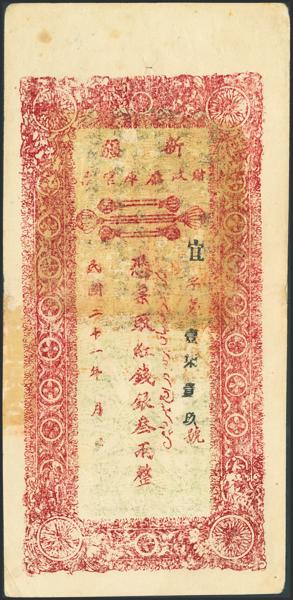 新疆
財政廳庫官票
宜字第壹柒壹玖號
憑票取紅錢銀叁兩整
民國二十一年 月